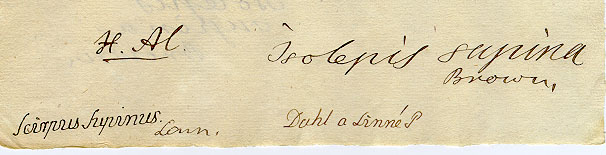 H. Al.
Isolepis supina
Brown.
Scirpus supinus.
Linn.
Dahl a Linné P